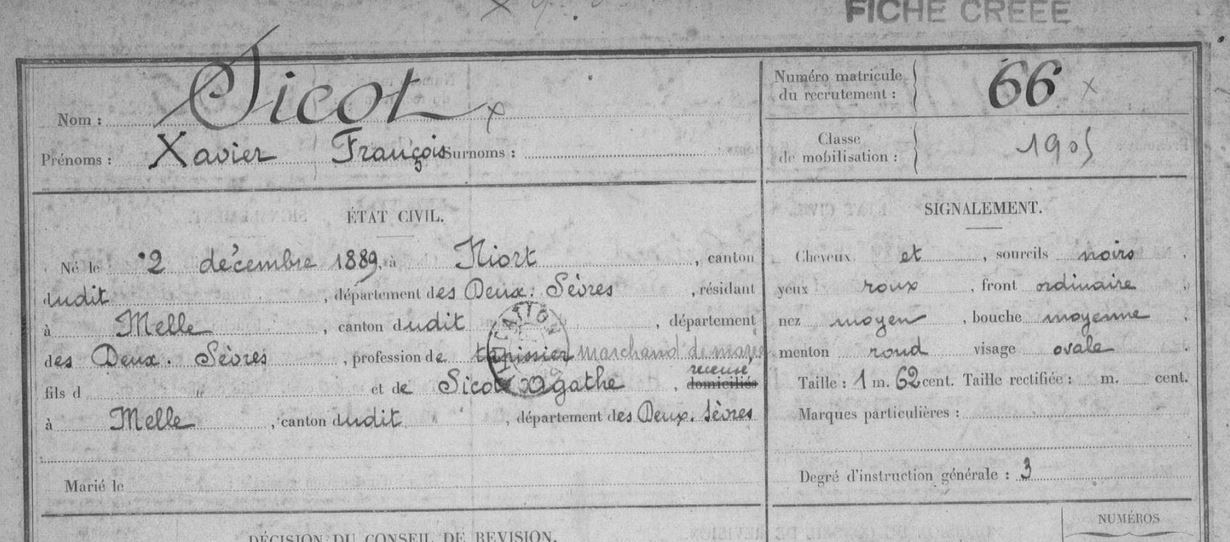 FICHE CRÉÉE
Nom : Sicot
Prénoms : Xavier François Surnoms :
Numéro matricule du recrutement : 66
Classe de mobilisation : 1905
ÉTAT CIVIL.
Né le 2 décembre 1889, à Niort, canton
dudit, département des Deux-Sèvres, résidant
à Melle, canton dudit, département
des Deux-Sèvres, profession de tapissier marchand de
fils d et de Sicot Agathe, domiciliés
à Melle, canton dudit, département des Deux-Sèvres
Marié le
SIGNALEMENT.
Cheveux et, sourcils noirs,
yeux roux, front ordinaire,
nez moyen, bouche moyenne,
menton rond visage ovale
Taille : 1 m. 62 cent. Taille rectifiée : m. cent.
Marques particulières :
Degré d'instruction générale : 3
DÉCISION DU CONSEIL DE REVISION.
NUMÉROS